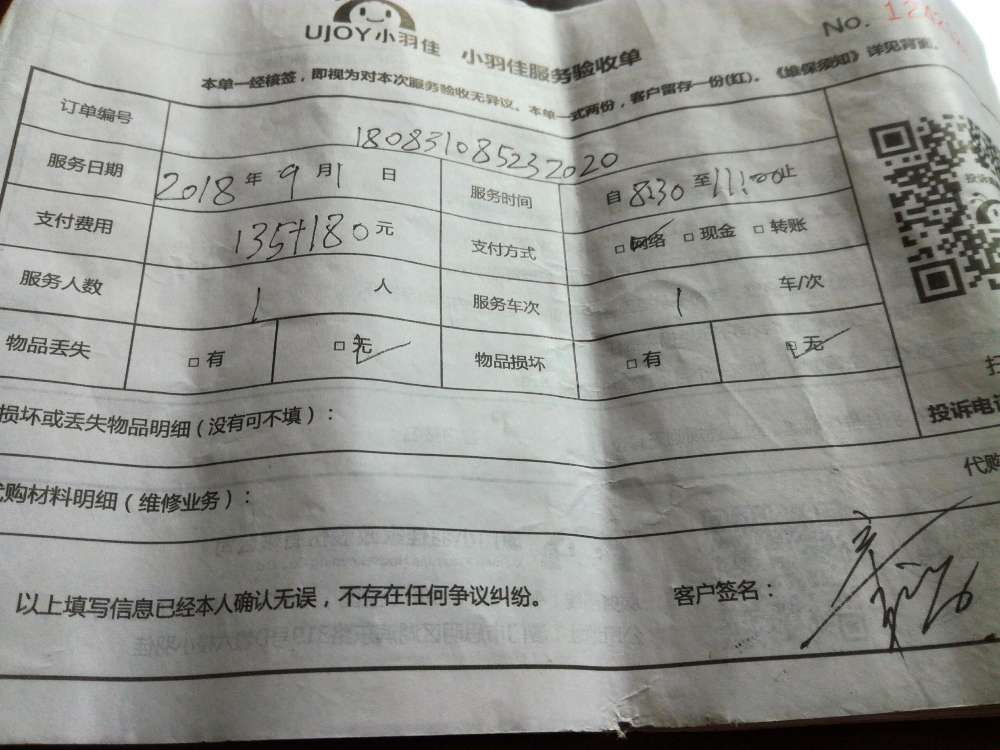 UJOY小羽佳 小羽佳服务验收单
No.
本单一经核签，即视为对本次服务验收无异议。本单一式两份，客户留存一份(红)。《维保须知》详见背面。
订单编号 180831085232020
服务日期 2018年9月1日 服务时间 自8:30至11:00止
支付费用 135+180元 支付方式 □网络 □现金 □转账
服务人数 1人 服务车次 1车/次
物品丢失 □有 □无 物品损坏 □有 □无
损坏或丢失物品明细（没有可不填）：
投诉电
代购
购材料明细（维修业务）：
以上填写信息已经本人确认无误，不存在任何争议纠纷。 客户签名：